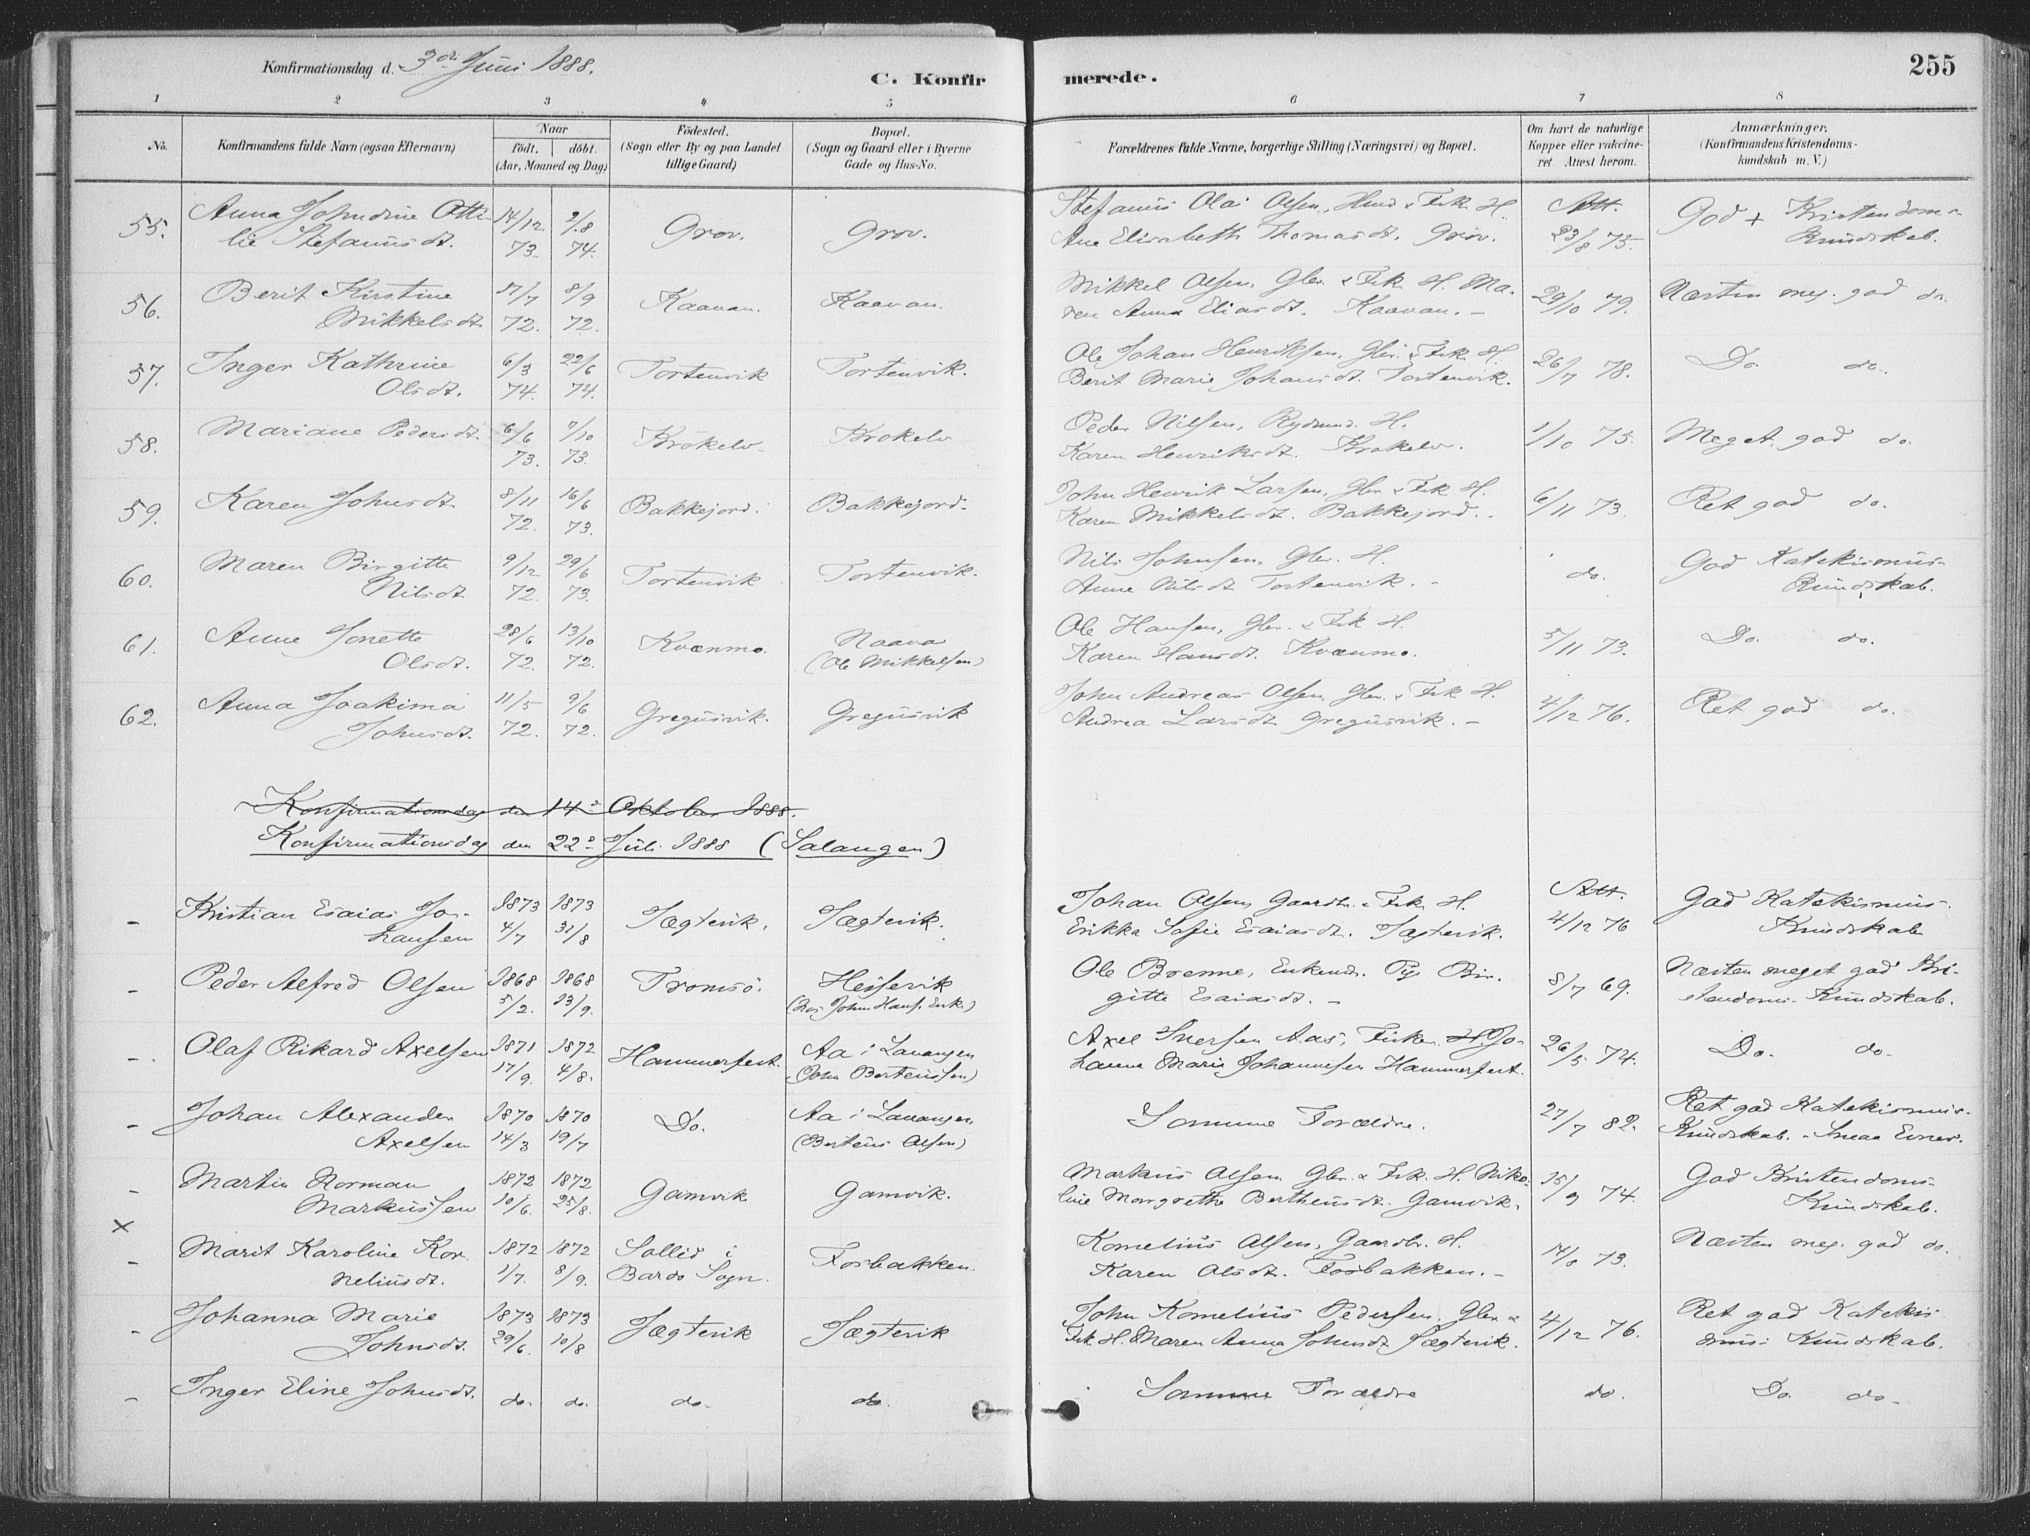 Konfirmationsdag d. 3die Juni 1888.
C. Konfir merede. 255
1 2 3 4 5 6 7 8
No. Konfirmandens fulde Navn (ogsaa Efternavn) Naar født. døbt. (Aar, Maaned og Dag) Födested. (Sogn eller By og paa Landet tillige Gaard) Bopæl. (Sogn og Gaard eller i Byerne Gade og Hus-No. Forældrenes fulde Navne, borgerlige Stilling (Næringsvei) og Bopæl. Om havt de naturlige Kopper eller vakcineret. Attest herom. Anmærkninger. (Konfirmandens Kristendomskundskab m. V.)
55. Anna Johndine Otti- 14/12 2/8 Grov. Grov. Stefanus Olai Olsen, & Fisk. H. Att. God + Kristendoms-
lie Stefanusdt. 73. 74. Ane Elisabeth Thomasdt. Grov. 23/8 75. Kundskab.
56. Berit Kirstine 17/7 8/9 Kaavan. Kaavan. Mikkel Olsen, Gbr. & Fisk. H. Ma- 29/10 79. Næsten meg. god do.
Mikkelsdt. 72. 72. ren Anna Eliasdt. Kaavan. -
57. Inger Kathrine 6/3 22/6 Tortenvik Tortenvik. Ole Johan Henriksen, Gbr. & Fisk. H. 26/7 78. Do. do.
Olsdt. 74. 74. Berit Marie Johansdt. Tortenvik.
58. Mariane Pedersdt. 6/6 7/10 Krokelv. Krokelv Peder Nilsen, Rydmd. H. 1/10 75. Meget god do.
73. 73. Karen Henriksdt. Krokelv.
59. Karen Johnsdt. 8/11 16/6 Bakkejord. Bakkejord. John Henrik Larsen, Gbr. & Fisk. H. 6/11 73. Ret god do.
72. 73. Karen Mikkelsdt. Bakkejord.
60. Maren Birgitte 9/12 29/6 Tortenvik Tortenvik. Nils Johnsen, Gbr. H. do. God Katekismus-
Nilsdt. 72. 73. Anne Nilsdt Tortenvik. - Kundskab.
61. Anne Jonette 28/6 13/10 Kvænmo. Naava Ole Hansen, Gbr. & Fisk. H. 5/11 73. Do. do.
Olsdt. 72. 72. (Ole Mikkelsen) Karen Hansdt. Kvænmo.
62. Anna Joakima 11/5 9/6 Gregusvik. Gregusvik John Andreas Olsen, Gbr. & Fisk. H. 4/12 76. Ret god do.
Johnsdt. 72. 72. Andrea Larsdt. Gregusvik. -
Konfirmationsdag den 14de Oktober 1888.
Konfirmationsdag den 22de Juli 1888 (Salangen)
- Kristian Esaias Jo- 1873 1873 Jægtevik. Jægtevik. Johan Olsen, Gaardbr. & Fisk. H. Att. God Katekismus-
hansen 4/7 31/8 Erikka Sofie Esaiasdt. Jægtevik. 4/12 76 Kundskab
- Peder Alfred Olsen 1868 1868 Tromsø. Hessevik Ole Brenne, Enkemd. Pg. Bir- 8/7 69. Næsten meget god Kri-
5/2. 13/9. (hos John Hans. Enke) gitte Esaiasdt. - stendoms-Kundskab.
- Olaf Rikard Axelsen 1871 1872 Hammerfest. Aa i Lavangen Axel Iversen Aas, Fisker H. Jo- 26/5 74. Do. do.
17/9. 4/8. (John Berteussen) hanna Marie Johannesen Hammerfest.
- Johan Alexander 1870 1870 Do. Aa i Lavangen Samme Forældre. 27/7 82. Ret god Katekismus-
Axelsen 14/3 19/7 (Berteus Olsen) Kundskab. - Smaa Evner.
- Martin Norman 1872 1872 Gamvik Gamvik. Markus Olsen, Gbr. & Fisk. H. Niko- 15/9 74. God Kristendoms-
Markussen 10/6. 25/8. line Margrethe Bertheusdt. Gamvik. Kundskab.
×
- Marit Karoline Kor- 1872 1872 Sollid i Fosbakken. Kornelius Olsen, Gaardbr. H. 73. Næsten meg. god do.
neliusdt. 1/7. 8/9. Bardo Sogn. Karen Olsdt. Fosbakken. -
- Johanna Marie 1873 1873 Jægtevik Jægtevik John Kornelius Pedersen, Gbr. & 4/12 76. Ret god Katekis-
Johnsdt. 29/6. 10/8 Fisk. H. Maren Anna Johnsdt Jægtevik. mus- Kundskab.
- Inger Eline Johnsdt. do. do. do. do. Samme Forældre do. Do. do.